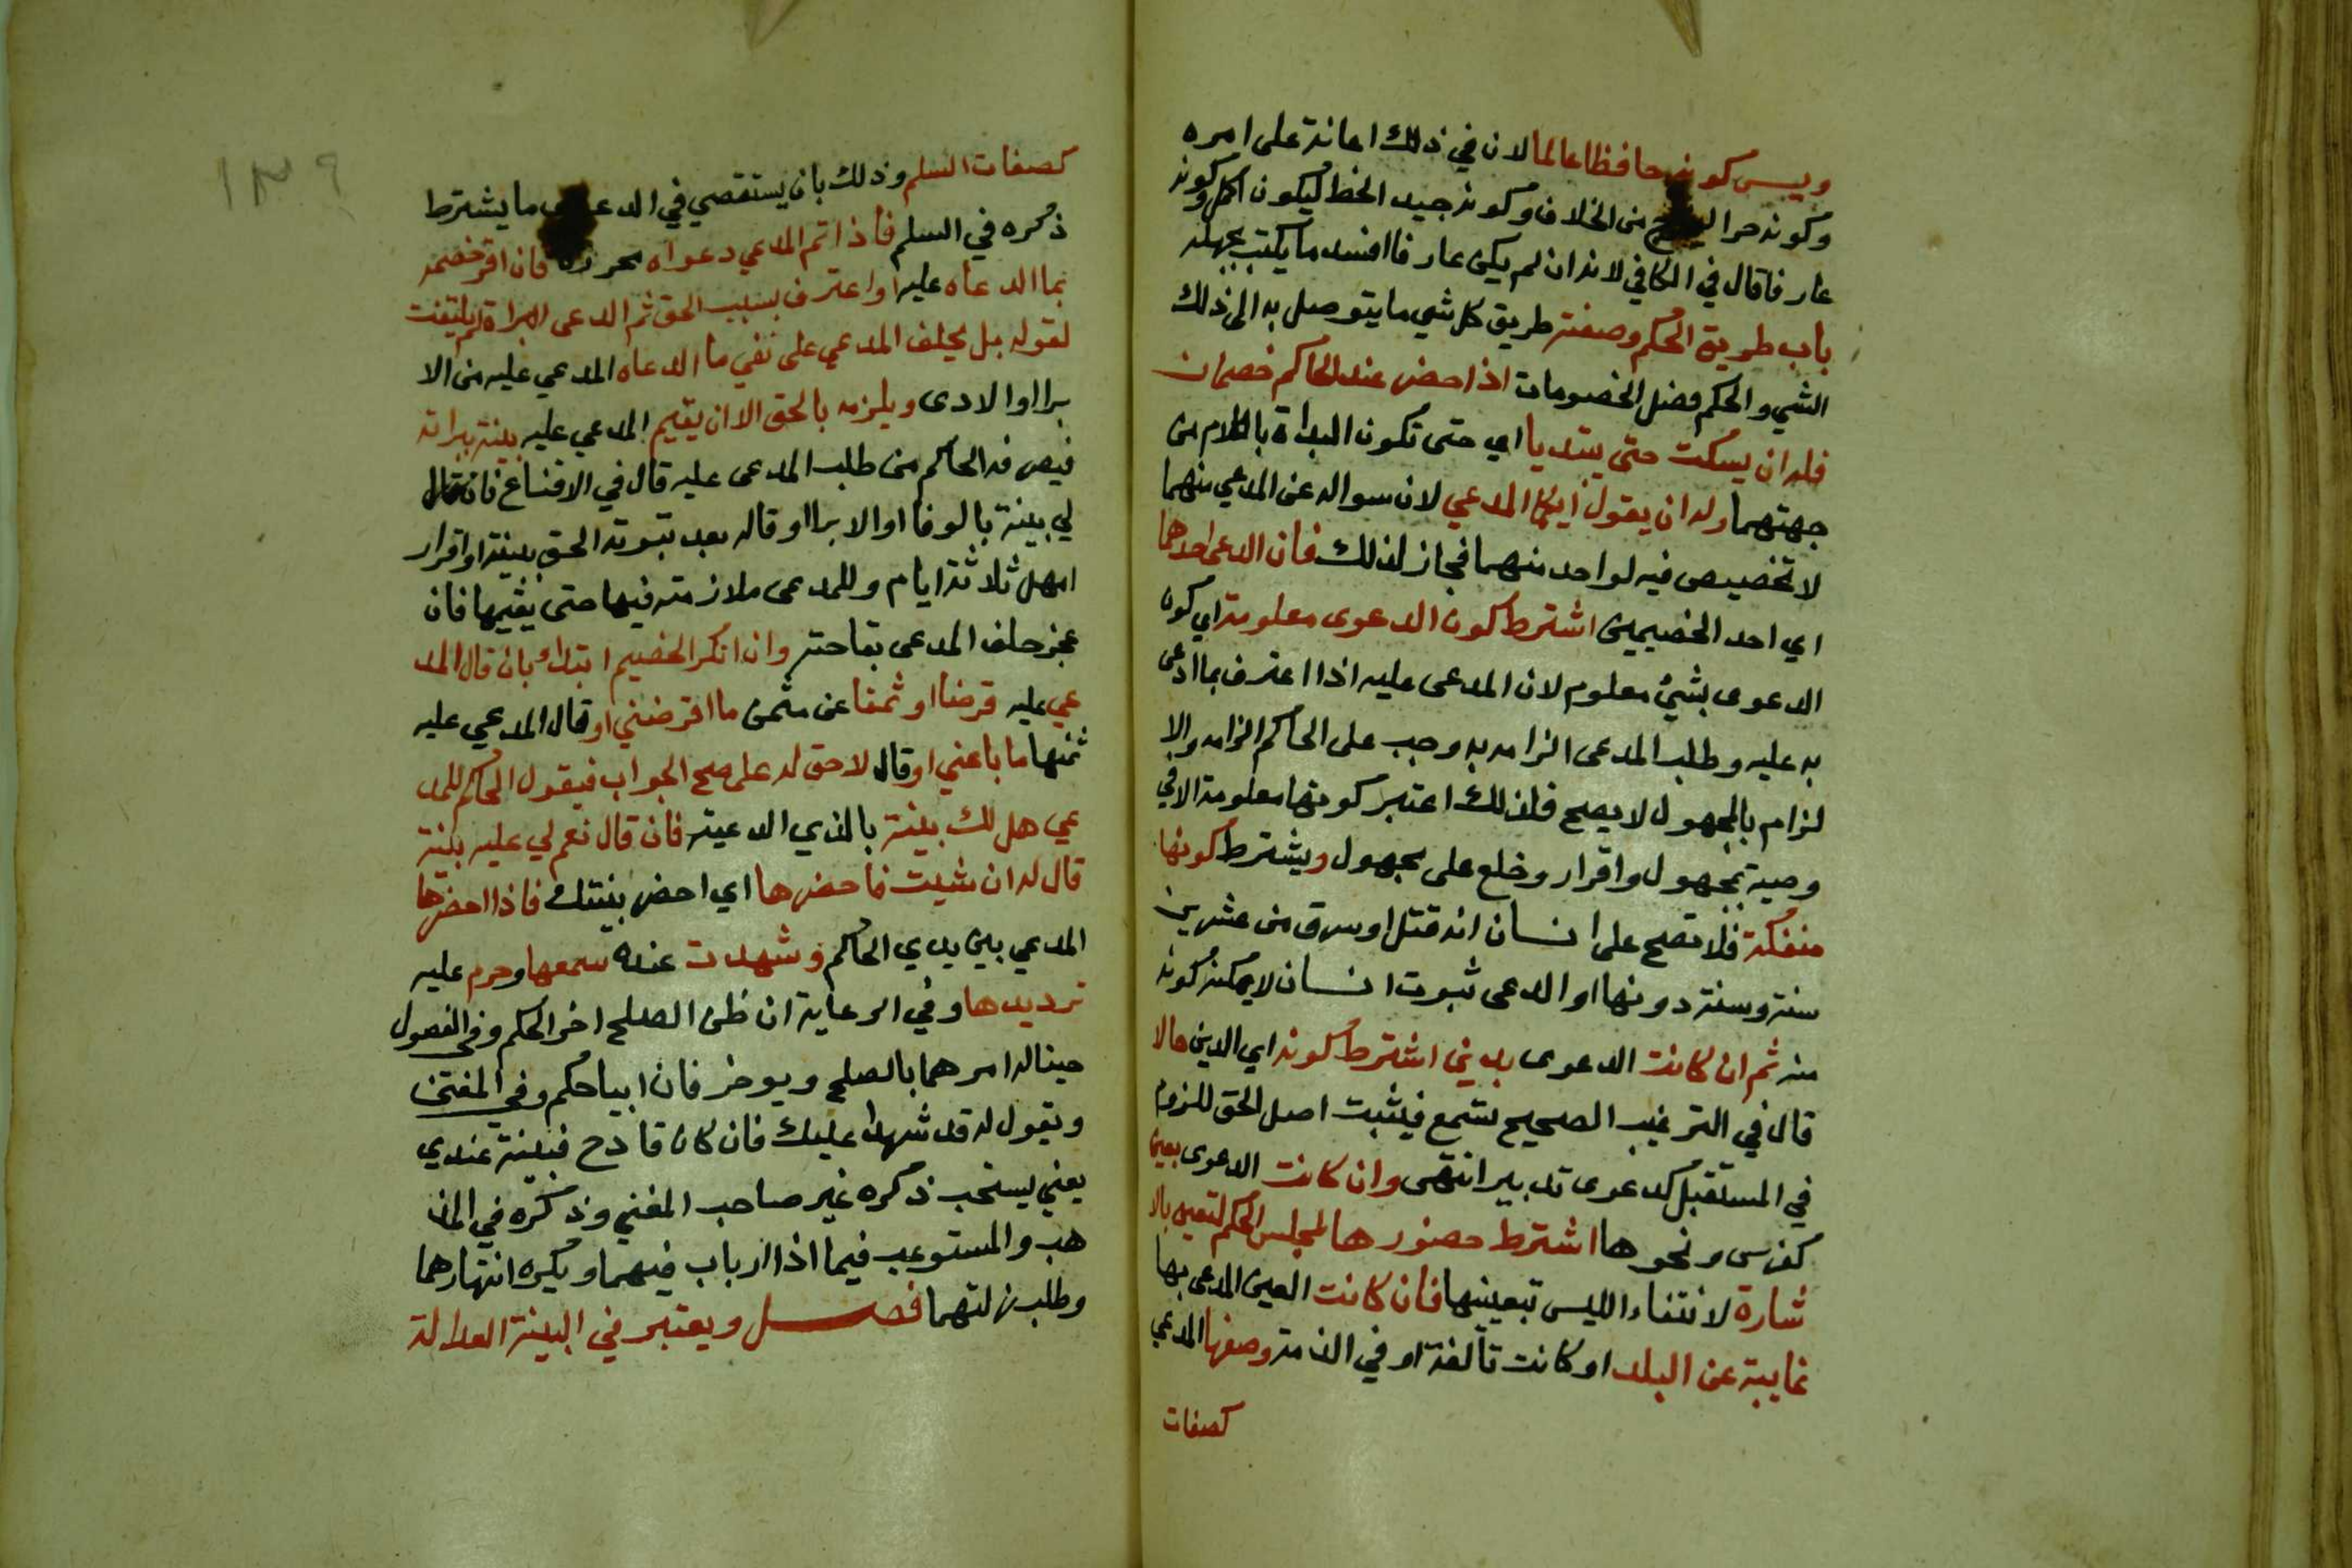 ويسن كونه حافظا عالما لان في ذلك اعانة على امره
وكونه حرا ليخرج من الخلاف وكونه جيد الخط ليكون اكمل وكونه
عارفا قال في الكافي لانه ان لم يكن عارفا افسد ما يكتب بجهله
باب طريق الحكم وصفته طريق كل شي ما يتوصل به الى ذلك
الشي والحكم فصل الخصومات اذا حضر عند الحاكم خصمان
فله ان يسكت حتى يبتديا اي حتى تكون البداة بالكلام من
جهتهما وله ان يقول ايكما المدعي لان سواله عن المدعي منهما
لا تخصيص فيه لواحد منهما فجاز لذلك فان ادعى احدهما
اي احد الخصيمين اشترط كون الدعوى معلومة اي كون
الدعوى بشي معلوم لان المدعى عليه اذا اعترف بما ادعى
به عليه وطلب المدعى الزامه به وجب على الحاكم الزامه والا
لزام بالمجهول لا يصح فلذلك اعتبر كونها معلومة الا في
وصية بمجهول واقرار وخلع على مجهول ويشترط كونها
منفكة فلا تصح على انسان انه قتل او سرق من عشرين
سنة وسنة دونها او ادعى ثبوت انسان لا يمكن كونه
منه ثم ان كانت الدعوى بدين اشترط كونه اي الدين حالا
قال في الترغيب الصحيح تسمع فيثبت اصل الحق للزوم
في المستقبل كدعوى تدبير انتهى وان كانت الدعوى بعين
كفرس ونحوها اشترط حضورها لمجلس الحكم لتعين بالا
شارة لانتفاء اللبس بتعيينها فان كانت العين المدعى بها
غايبة عن البلد او كانت تالفة او في الذمة وصفها المدعي
كصفات
١٣٩
كصفات السلم وذلك بان يستقصي في الدعوى ما يشترط
ذكره في السلم فاذا اتم المدعي دعواه محررة فان اقر خصمه
بما ادعاه عليه او اعترف بسبب الحق ثم ادعى البراة لم يلتفت
لقوله بل يحلف المدعي على نفي ما ادعاه المدعي عليه من الا
برا او الادى ويلزمه بالحق الا ان يقيم المدعي عليه بينة ببراته
فيصرفه الحاكم من طلب المدعى عليه قال في الاقناع فان قال
لي بينة بالوفا او الابرا او قاله بعد ثبوته الحق ببينة او اقرار
امهل ثلاثة ايام وللمدعى ملازمته فيها حتى يقيمها فان
عجز حلف المدعى بقا حقه وان انكر الخصيم ابتداء بان قال المد
عي عليه قرضا او ثمنا عن مثمن ما اقرضني او قال المدعي عليه
ثمنها ما باعني او قال لا حق له علي صح الجواب فيقول الحاكم للمد
عي هل لك بينة بالذي ادعيته فان قال نعم لي عليه بينة
قال له ان شيت فاحضرها اي احضر بينتك فاذا احضرها
المدعي بين يدي الحاكم وشهدت عنده سمعها وحرم عليه
ترديدها وفي الرعاية ان ظن الصلح اخر الحكم وفي الفصول
حينا له امرهما بالصلح ويوخر فان ابيا حكم وفي المغني
ويقول له قد شهدا عليك فان كان قادح فبينه عندي
يعني يستحب ذكره غير صاحب المغني وذكره في المذ
هب والمستوعب فيما اذا ارتاب فيهما ويكره انتهارهما
وطلب زلتهما فصل ويعتبر في البينة العدالة